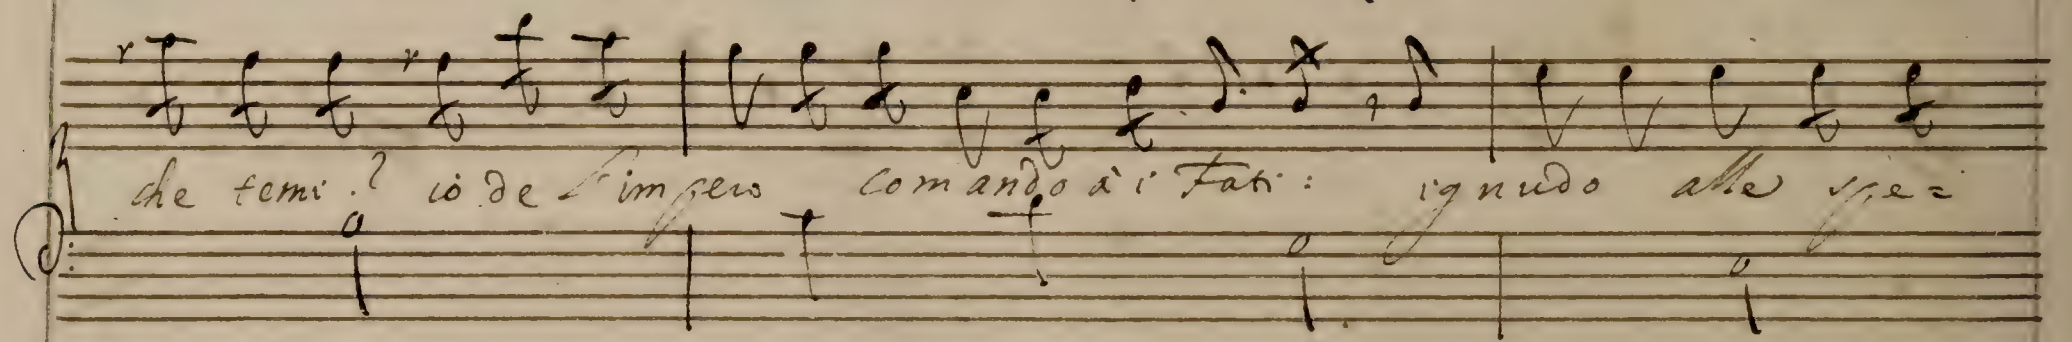 che temi? iò de l'impero comando à i Fati: ignudo alle spe=